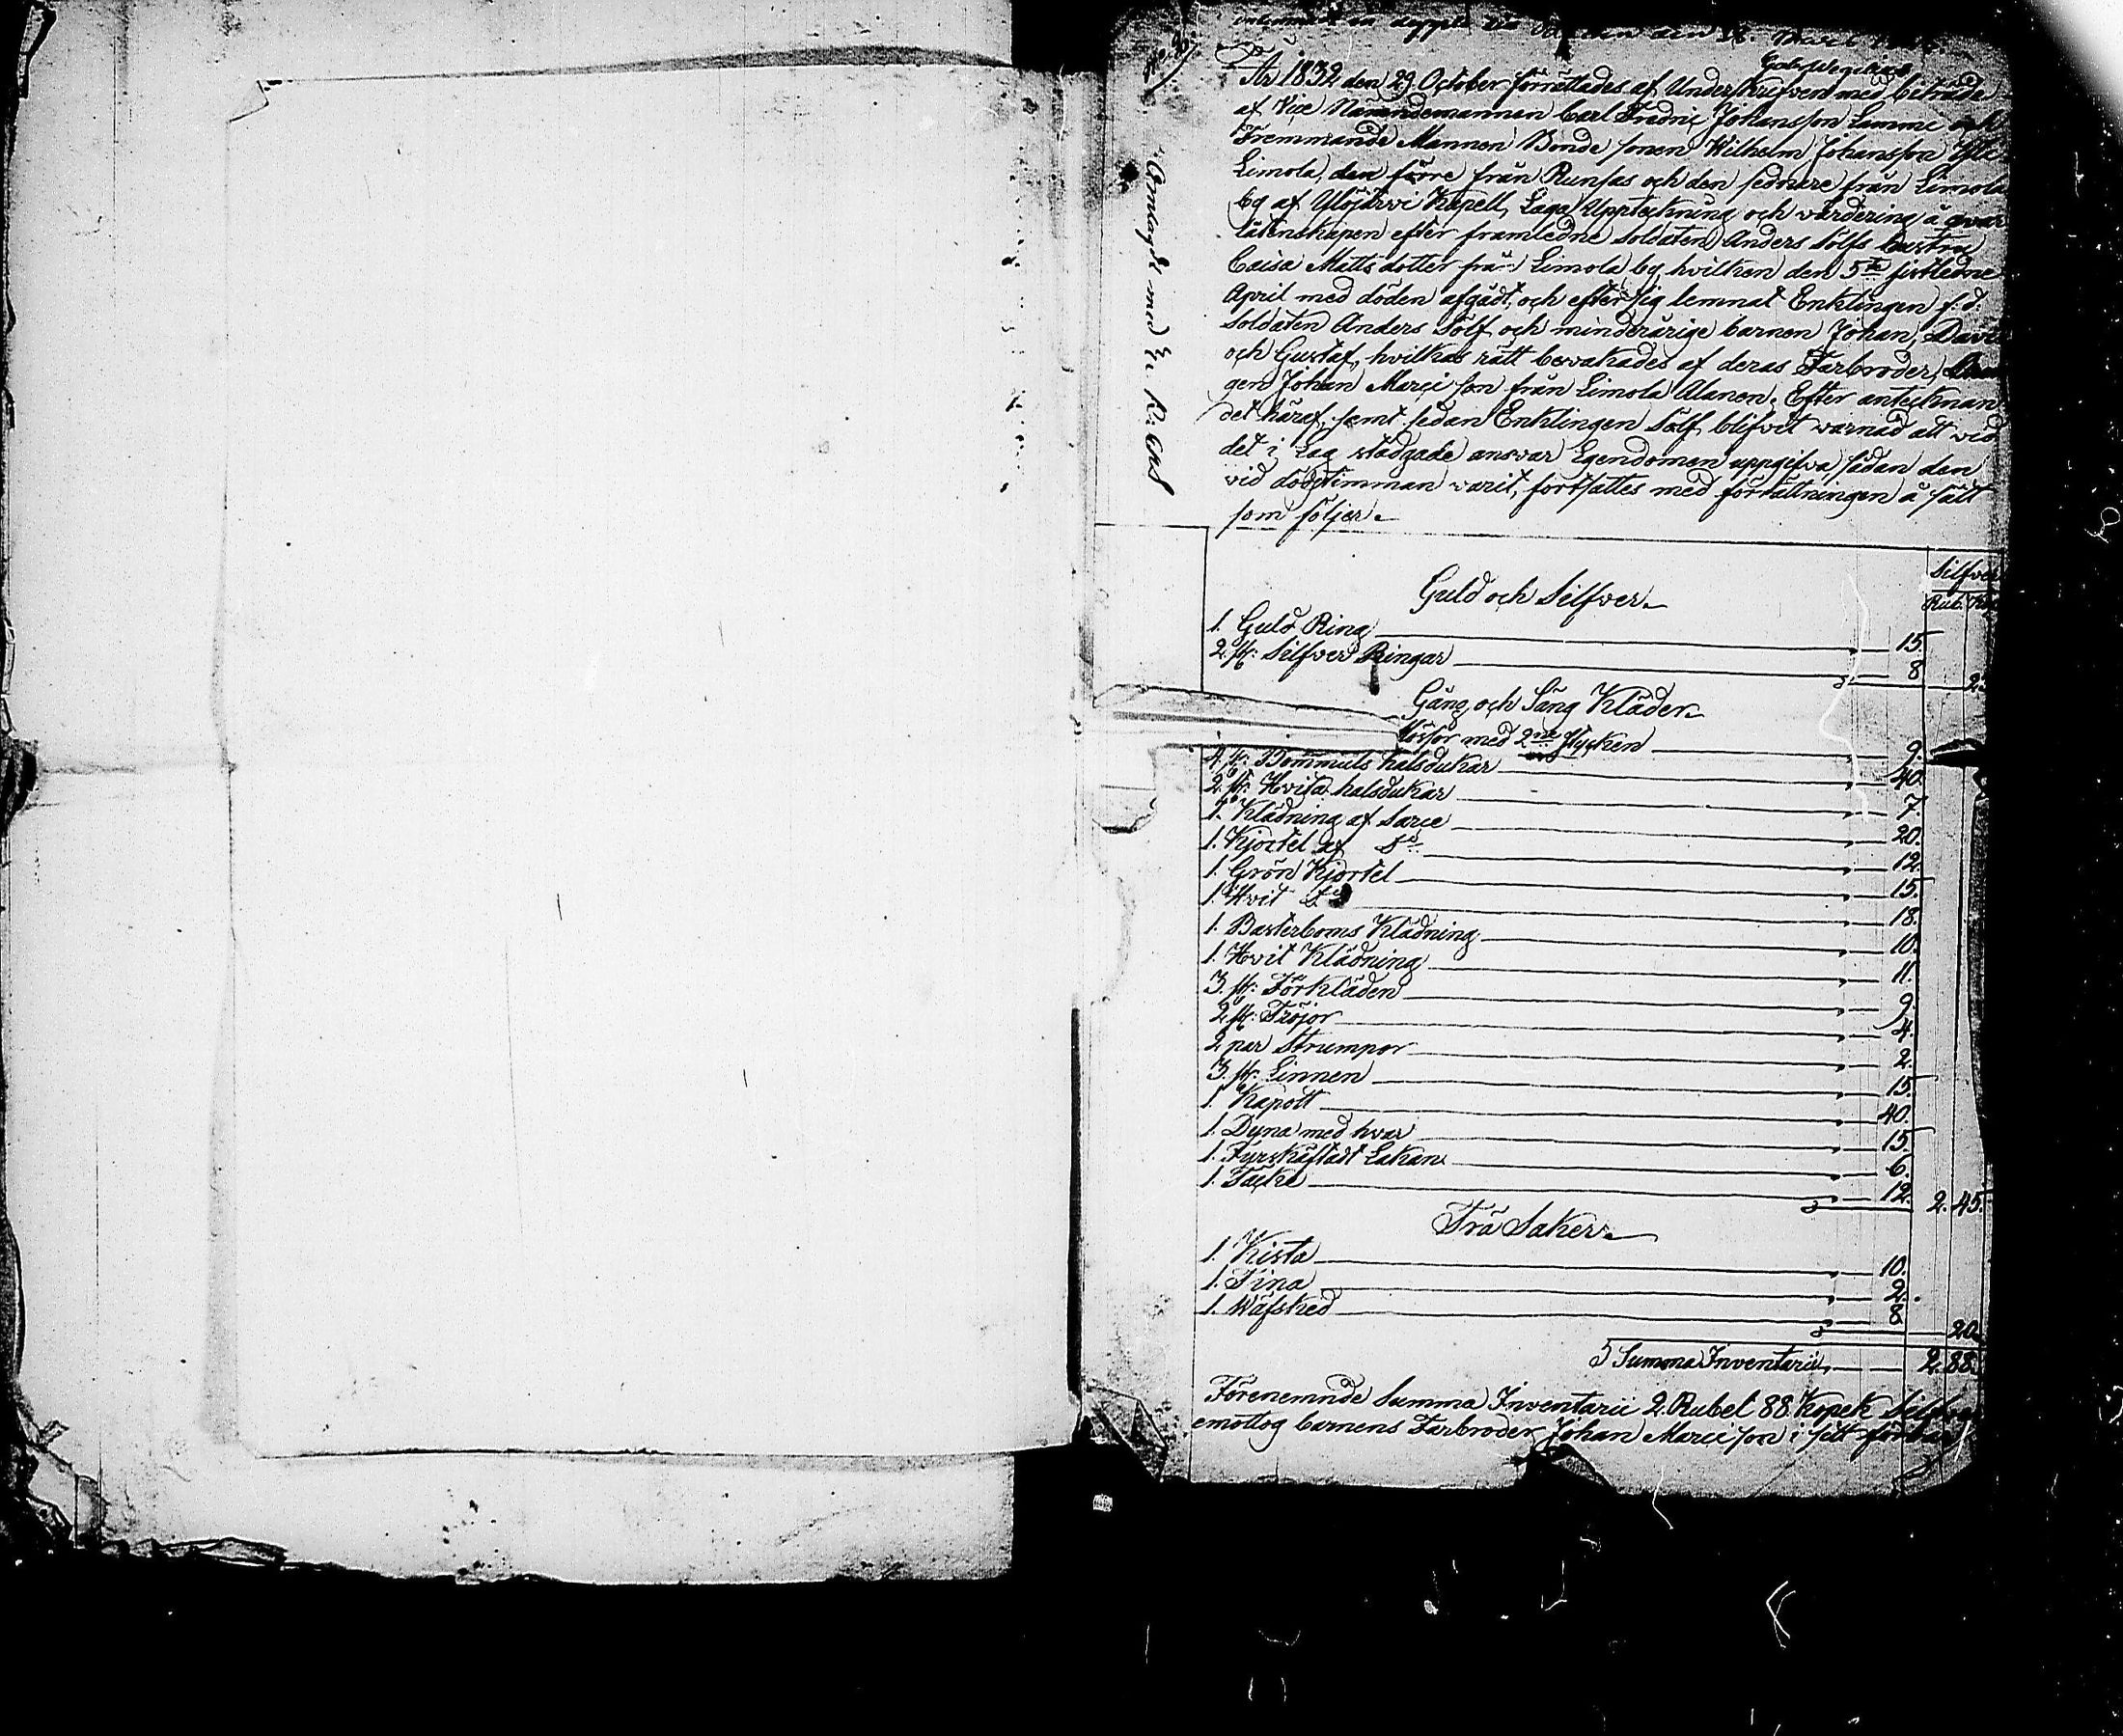 den 16. Mars
År 1832 den 29 October förrättades af Underskrifven med biträde
af Vice Nämndemannen Carl Fredric Johansson Lamme och
Främmande Mannen Bonde sonen Wilhelm Johansson Yli
Limola, den förre från Runsas och den sednare från Limola
by af Ylöjärvi Kapell, Laga Uppteckning och värdering å qvar
låtenskapen efter framledne soldaten Anders Sölfs hustru
Caisa Matts dotter från Limola by, hvilken den 5te sistledne
April med döden afgådt, och efter sig lemnat Enklingen f.d.
soldaten Anders Sölf och minderårige barnen Johan, Davi
och Gustaf, hvilkas rätt bevakades af deras Farbroder,
gen Johan Marci son från Limola Alanen. Efter antecknan
det häraf, samt sedan Enklingen Sölf blifvit varnad att vid
det i Lag stadgade ansvar Egendomen uppgifva sådan den
vid dödstimman varit, fortsattes med förrättningen å sätt
som följer.
Silfver
Rub. Kop
Guld och Silfver.
1. Guld Ring 15.
2. st: Silfver Ringar 8 23
Gång och Säng Kläder
Mössor med 2ne stycken 9.
4. st: Bommuls halsdukar 40.
2. st: Hvita halsdukar 7.
1. Klädning af Sarce 20.
1. Kjortel af do 12.
1. Grön Kjortel 15.
1. Hvit do 18.
1. Basterboms Klädning 10.
1. Hvit Klädning 11.
3. st: Förkläden 9.
2 st: Tröjor 4.
2 par Strumpor 2.
3. st: Linnen 15.
1. Kapott 40.
1. Dyna med hvar 15.
1. Fyrskäftadt Lakan 6.
1. Täcke 12. 2. 45.
Trä Saker.
1. Kista 10.
1. Tina 2.
1. Wäfsked 8 20.
Summa Inventarii 2. 88.
Förenemnde Summa Inventarii 2. Rubel 88. Kopek Silfver
emottog barnens Farbroder Johan Marci son i sitt förvar
Anlagdt med